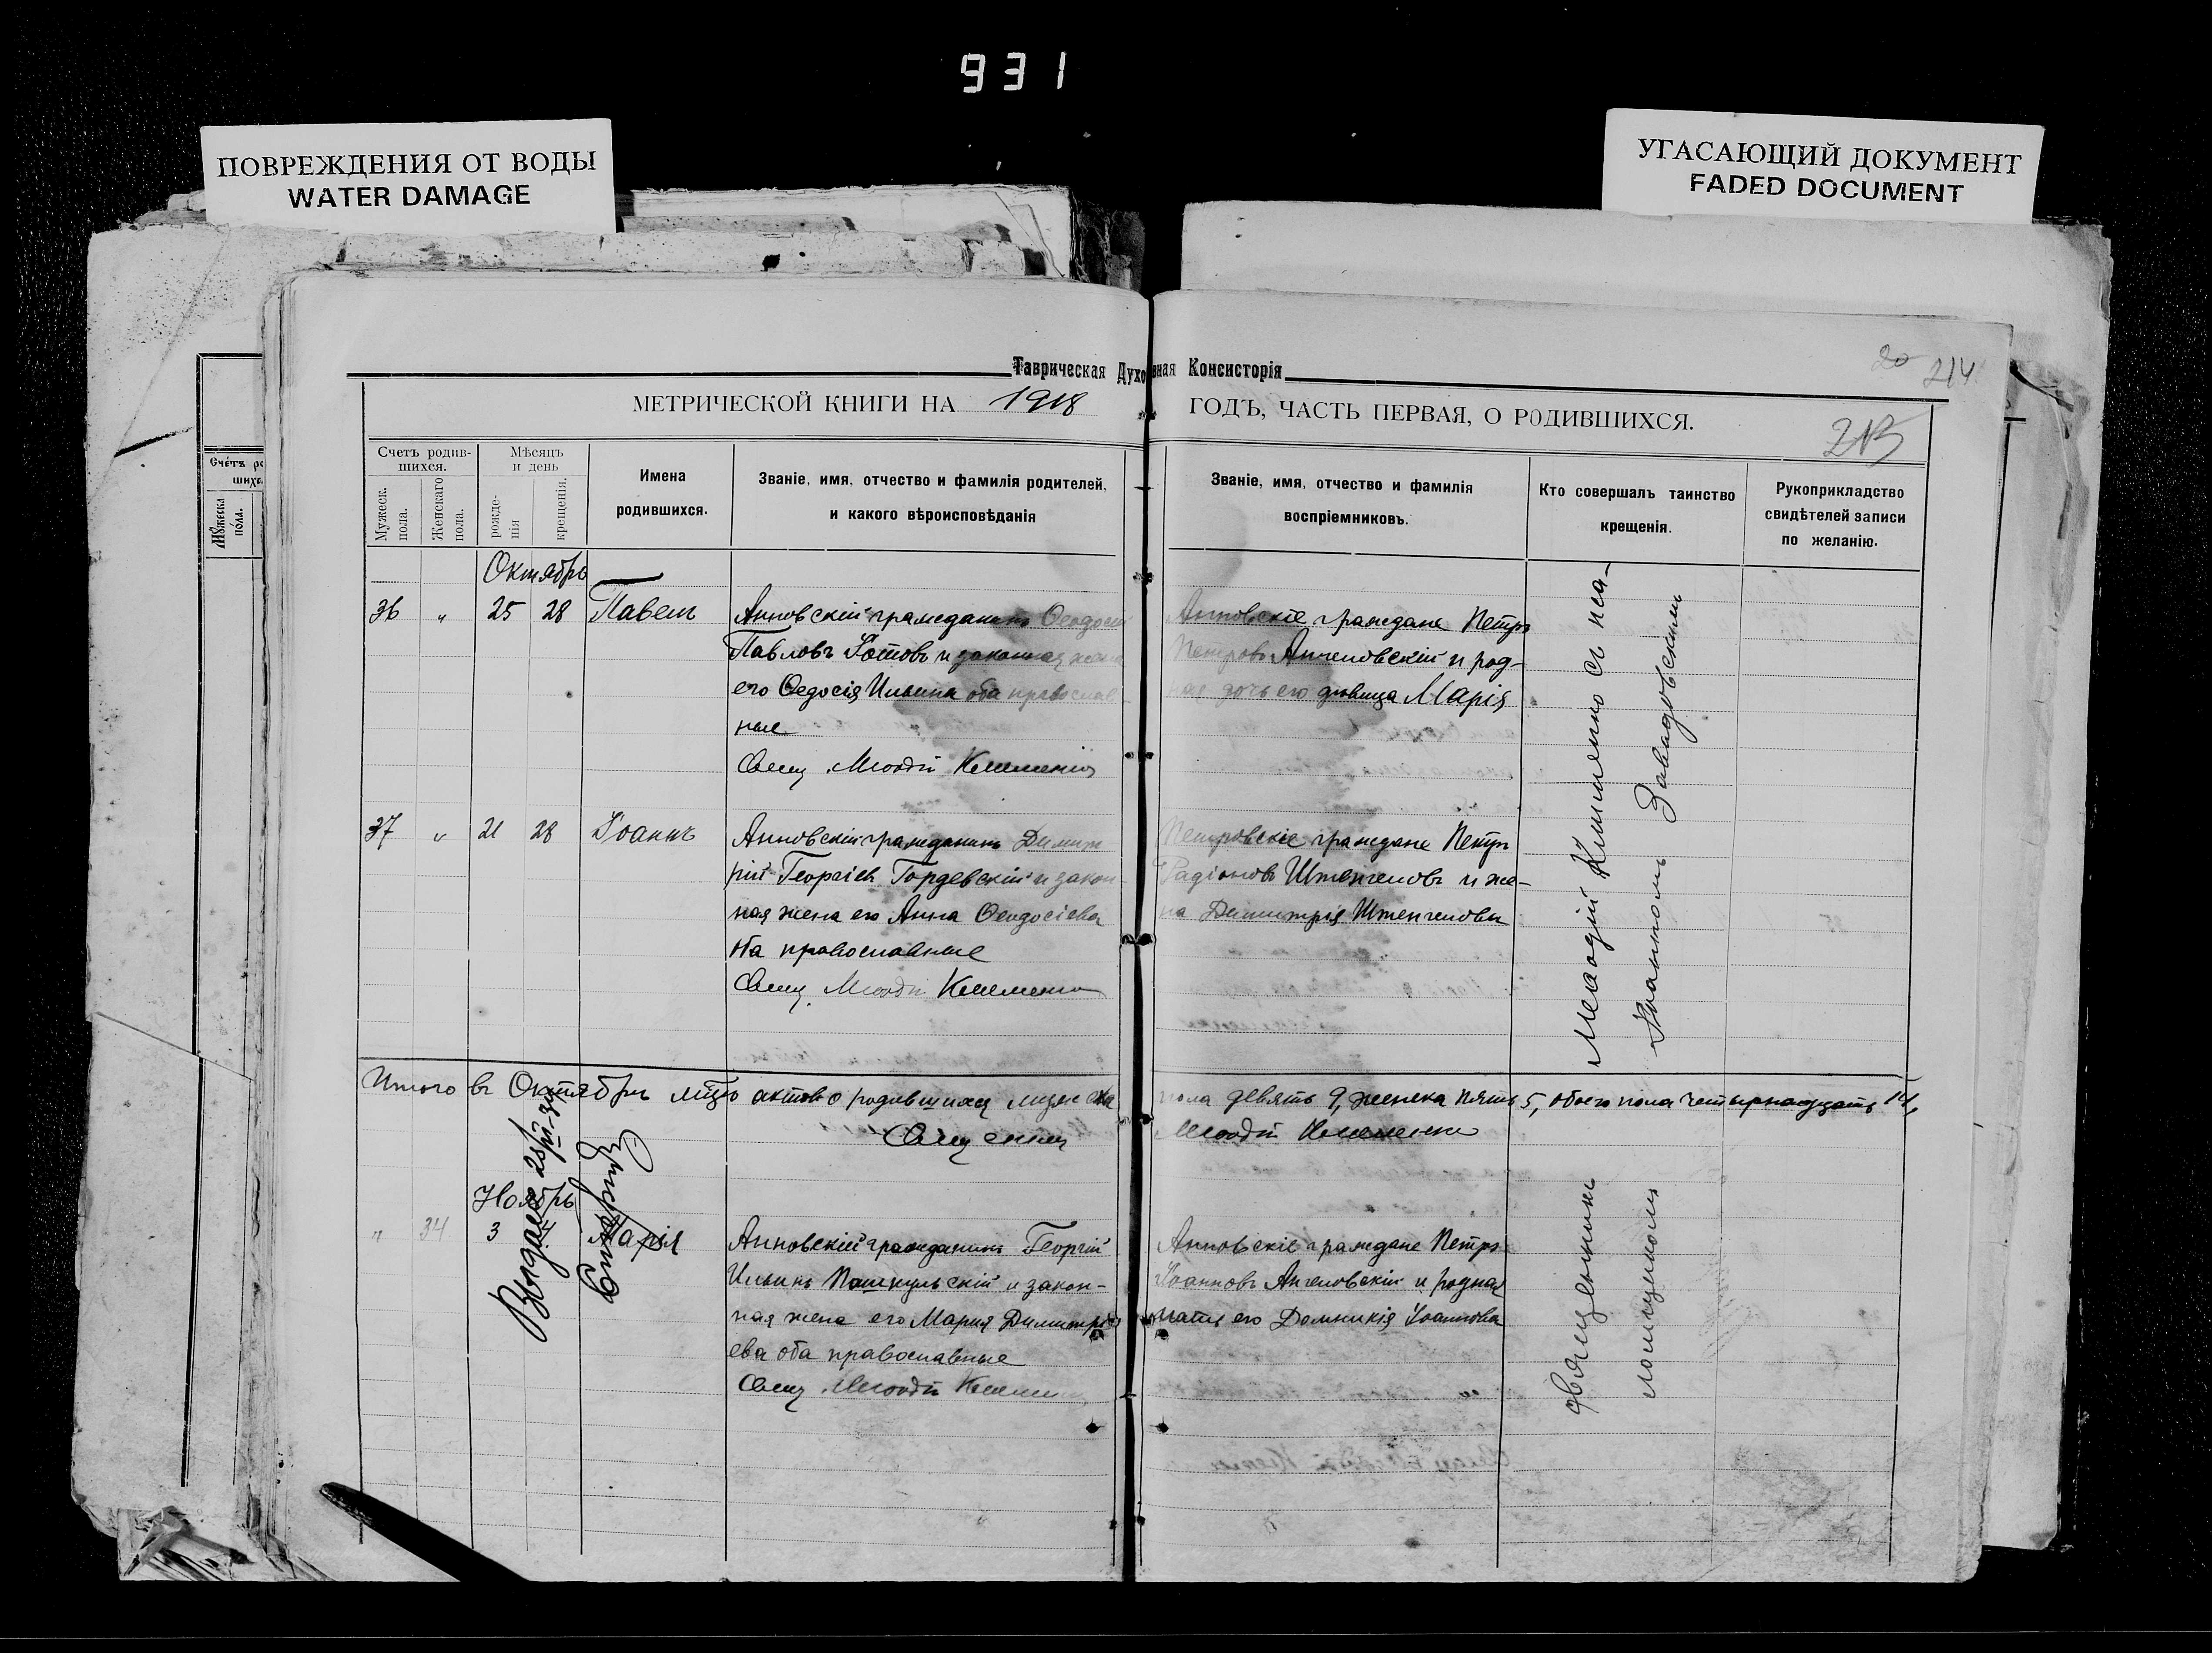 931
ПОВРЕЖДЕНИЯ ОТ ВОДЫ
WATER DAMAGE
УГАСАЮЩИЙ ДОКУМЕНТ
FADED DOCUMENT
Таврическая Духовная Консисторія
20 214
МЕТРИЧЕСКОЙ КНИГИ НА 1918 ГОДЪ, ЧАСТЬ ПЕРВАЯ, О РОДИВШИХСЯ.
213
Счетъ родив-
шихся.
Мужеск.
пола.
Женскаго
пола.
Мѣсяцъ
и день
рожде-
нія
крещенія.
Имена
родившихся.
Званіе, имя, отчество и фамилія родителей,
и какого вѣроисповѣданія
Званіе, имя, отчество и фамилія
воспріемниковъ.
Кто совершалъ таинство
крещенія.
Рукоприкладство
свидѣтелей записи
по желанію.
Октябрь
36 " 25 28 Павелъ
Анновскій гражданинъ Ѳеодосій
Павловъ Котовъ и законная жена
его Ѳедосія Ильина оба православ
ные
Свящ. Меѳодій Клименко
Анновскіе граждане Петръ
Петровъ Ангеловскій и род-
ная дочь его дѣвица Марія
37 " 21 28 Іоаннъ
Анновскій гражданинъ Димит
рій Георгіевъ Гордевскій и закон
ная жена его Анна Ѳеодосіева
оба православные
Свящ. Меѳодій Клименко
Петровскіе граждане Петръ
Радіоновъ Штенгеловъ и же-
на Димитрія Штенгелова
Меѳодій Клименко съ пса-
Іоанномъ Завадовскимъ
Итого въ Октябрѣ мцѣ актовъ о родившихся мужска пола девять 9, женска пять 5, обоего пола четырнадцать 14,
Священникъ Меѳодій Клименко
Ноябрь
" 34 3 4 Марія
Анновскій гражданинъ Георгій
Ильинъ Пошкульскій и закон-
ная жена его Мария Димитрі
ева оба православные
Свящ. Меѳодій Клименко
Анновскіе граждане Петръ
Іоанновъ Ангеловскій и родная
мать его Домникія Іоаннова
Священникъ
ломщикомъ
Выдана